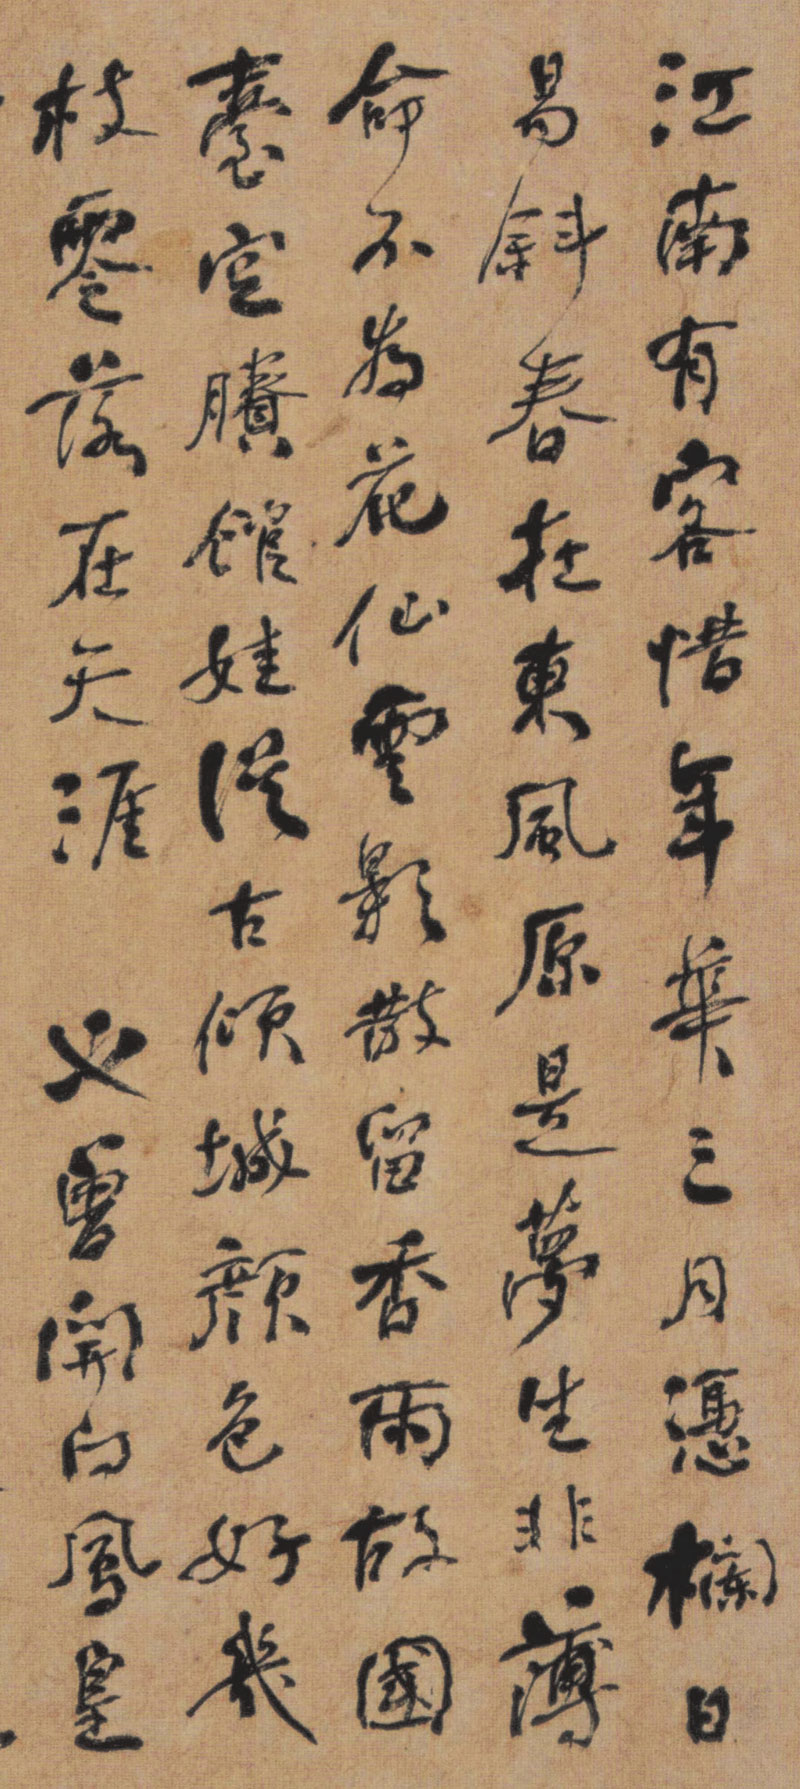 江南有客惜年華三月憑欄日
易斜春在東風原是夢生非薄
命不為花仙雲影散留香雨故國
臺空賸館娃從古傾城顏色好幾
枝零落在天涯 也曾開向鳳皇